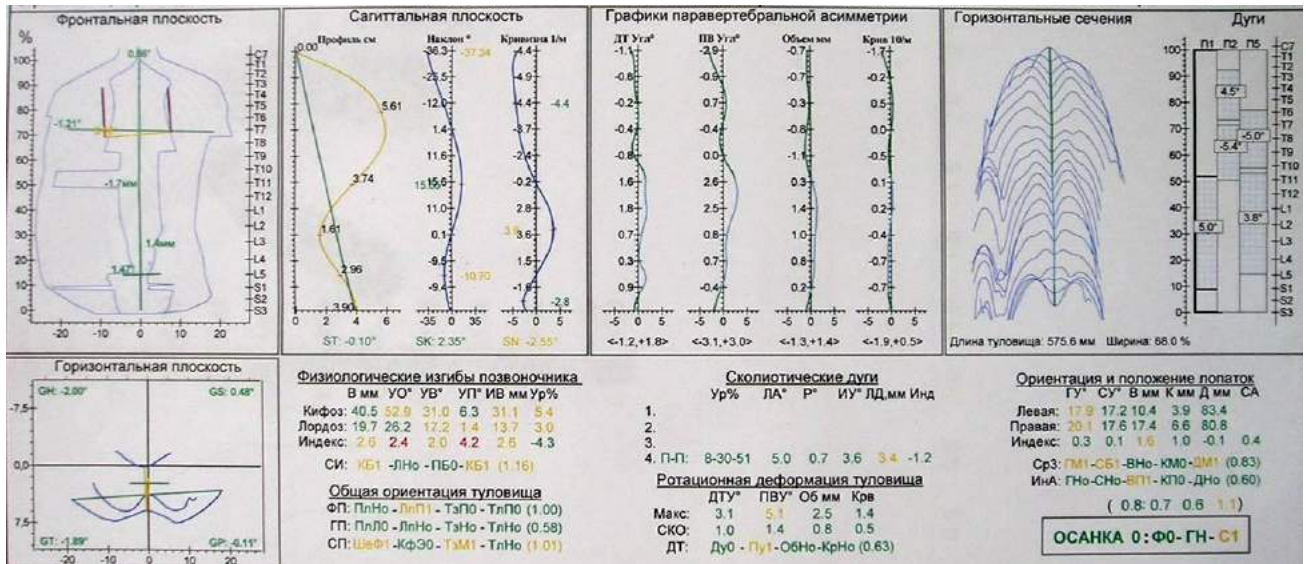 Фронтальная плоскость
%
100
90
80
70
60
50
40
30
20
10
0
0.86°
-1.21°
-1.7мм
1.4мм
1.47°
C7
T1
T2
T3
T4
T5
T6
T7
T8
T9
T10
T11
T12
L1
L2
L3
L4
L5
S1
S2
S3
-20 -10 0 10 20
Сагиттальная плоскость
Профиль см Наклон ° Кривизна 1/м
0.00
5.61
3.74
1.61
2.96
3.90
0 2 4 6
-36.3
-25.5
-12.0
1.4
11.6
15.6
11.0
0.1
-9.5
-9.4
-37.24
-10.70
-35 0 35
-4.4
-4.9
-4.4
-3.7
-2.4
-0.2
1.4
3.6
1.5
-1.6
-4.4
3.9
-2.8
-5 0 5
ST: -0.10° SK: 2.35° SN: -2.55°
Графики паравертебральной асимметрии
ДТ Угл° ПВ Угл° Объем мм Крив 10/м
-1.1 -2.9 -0.7 -1.7
-0.8 -0.9 -0.7 -0.2
-0.2 0.7 -0.3 0.5
-0.4 -0.4 -0.8 0.0
-0.8 0.0 -1.1 -0.5
1.6 2.6 0.3 0.1
1.8 2.5 1.4 0.2
0.7 0.8 0.7 -0.4
0.3 -0.7 0.2 -0.1
0.9 -0.4 0.2 -0.7
-5 0 5 -5 0 5 -5 0 5 -5 0 5
<-1.2,+1.8> <-3.1,+3.0> <-1.3,+1.4> <-1.9,+0.5>
Горизонтальные сечения
Длина туловища: 575.6 мм Ширина: 68.0 %
Дуги
П1 П2 П5
100
90
80
70
60
50
40
30
20
10
0
4.5°
-5.0°
-5.4°
5.0°
3.8°
C7
T1
T2
T3
T4
T5
T6
T7
T8
T9
T10
T11
T12
L1
L2
L3
L4
L5
S1
S2
S3
Горизонтальная плоскость
GH: -2.00° GS: 0.48°
-7.5
0,0
7.5
GT: -1.89° GP: -0.11°
-20 -10 0 10 20
Физиологические изгибы позвоночника
В мм УО° УВ° УП° ИВ мм Ур%
Кифоз: 40.5 52.9 31.0 6.3 31.1 5.4
Лордоз: 19.7 26.2 17.2 1.4 13.7 3.0
Индекс: 2.6 2.4 2.0 4.2 2.6 -4.3
СИ: КБ1 -ЛНо -ПБ0-КБ1 (1.16)
Общая ориентация туловища
ФП: ПлНо -ЛпП1 - ТэП0 - ТлП0 (1.00)
ГП: ПлЛ0 - ЛпНо - ТэНо - ТлНо (0.58)
СП: ШеФ1 -КфЭ0 - ТэМ1 - ТлНо (1.01)
Сколиотические дуги
Ур% ЛА° Р° ИУ° ЛД,мм Инд
1.
2.
3.
4. П-П: 8-30-51 5.0 0.7 3.6 3.4 -1.2
Ротационная деформация туловища
ДТУ° ПВУ° Об мм Крв
Макс: 3.1 5.1 2.5 1.4
СКО: 1.0 1.4 0.8 0.5
ДТ: Ду0 - Пу1 -ОбНо-КрНо (0.63)
Ориентация и положение лопаток
ГУ° СУ° В мм К мм Д мм СА
Левая: 17.9 17.2 10.4 3.9 83.4
Правая: 20.1 17.6 17.4 6.6 80.8
Индекс: 0.3 0.1 1.6 1.0 -0.1 0.4
Ср3: ГМ1-СБ1-ВНо-КМ0-ДМ1 (0.83)
ИнА: ГНо-СНо-ВП1-КП0-ДНо (0.60)
( 0.8: 0.7 0.6 1.1)
ОСАНКА 0:Ф0- ГН- С1